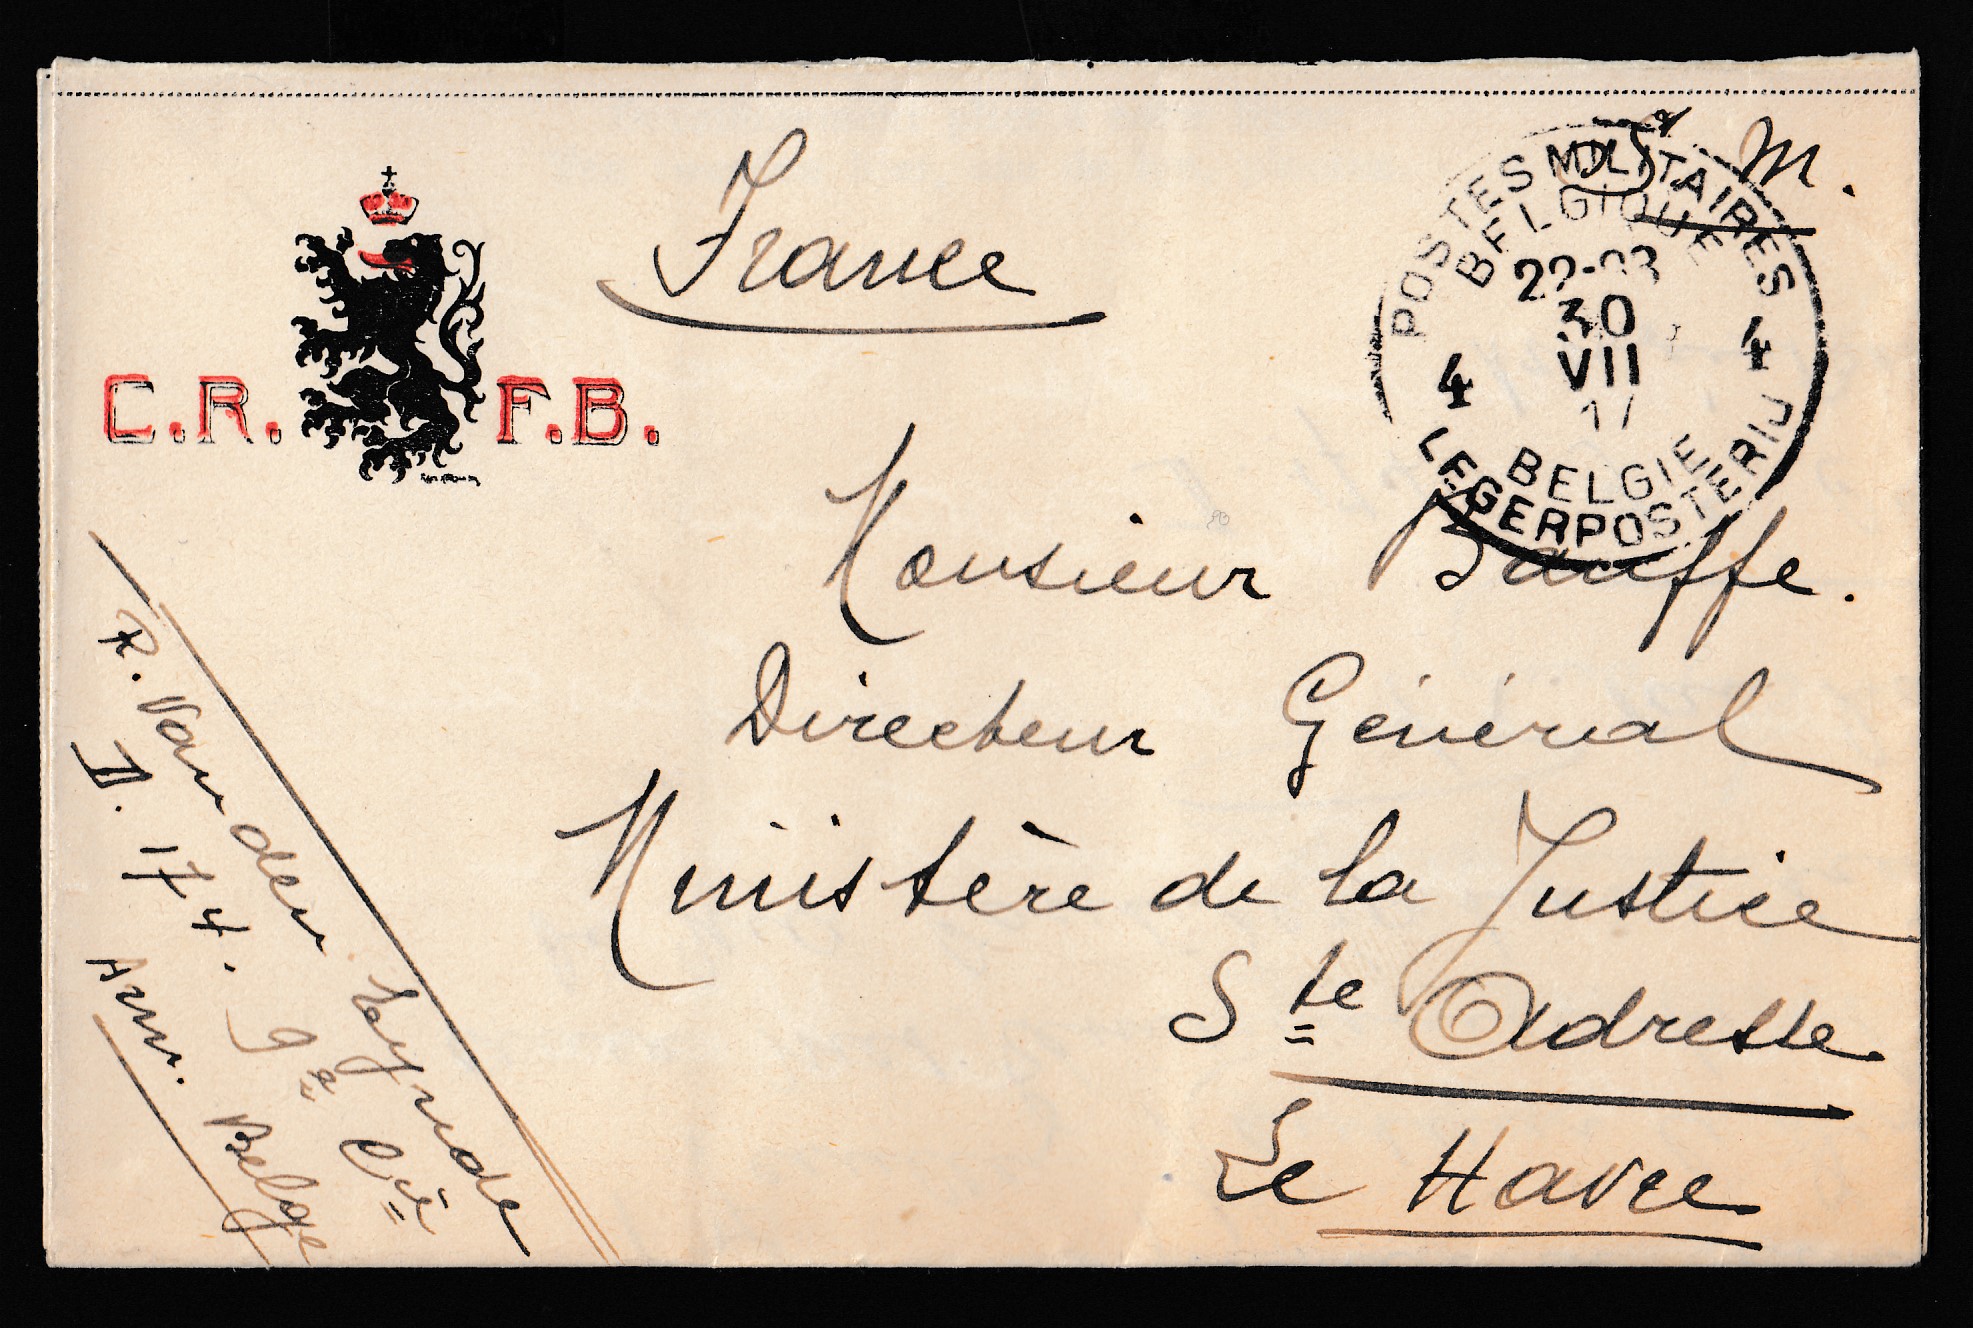 France
S. M.
C.R. F.B.
POSTES MILITAIRES
BELGIQUE
22-23
30
VII
17
4 4
BELGIE
LEGERPOSTERIJ
Monsieur Dauffe.
Directeur Général
Ministère de la Justice
Ste Adresse
Le Havre
R. Vander Eeynde
D. 174. 9e Cie
Arm. Belge